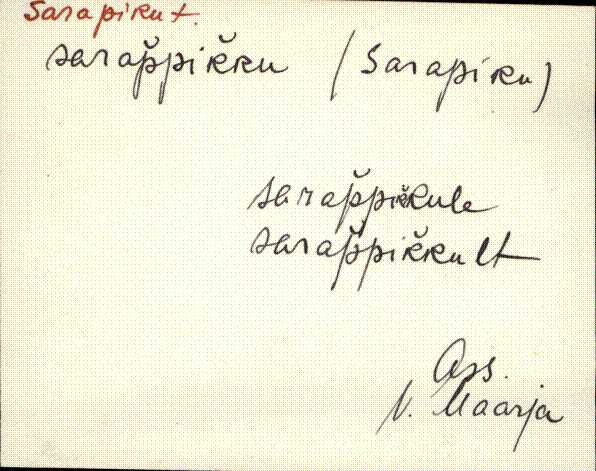 Sarapiku t.
sarap̆pik̆ku (Sarapiku)
sarap̆pik̆kule
sarap̆pik̆kult
Ass.
V. Maarja